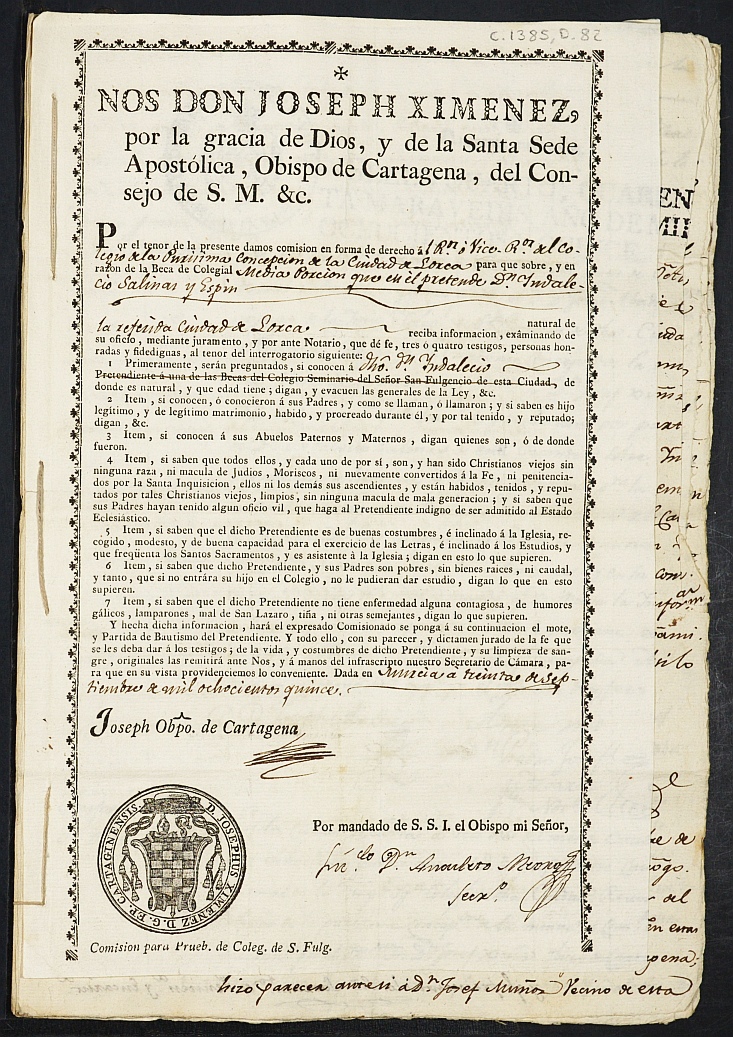 C.1385, D.82
NOS DON JOSEPH XIMENEZ,
por la gracia de Dios, y de la Santa Sede
Apostólica, Obispo de Cartagena, del Con-
sejo de S. M. &c.
Por el tenor de la presente damos comision en forma de derecho á l Rn. ó Vice-Rn. del Co-
legio de la Purisima Concepcion de la Ciudad de Lorca para que sobre, y en
razon de la Beca de Colegial Media Porcion que en él pretende Dn. Yndale-
cio Salinas y Espin
natural de
la referida Ciudad de Lorca. reciba informacion, examinando de
su oficio, mediante juramento, y por ante Notario, que dé fe, tres ó quatro testigos, personas hon-
radas y fidedignas, al tenor del interrogatorio siguiente:
1 Primeramente, serán preguntados, si conocen á dho. Dn. Yndalecio
Pretendiente á una de las Becas del Colegio Seminario del Señor San Fulgencio de esta Ciudad, de
donde es natural, y que edad tiene; digan, y evacuen las generales de la Ley, &c.
2 Item, si conocen, ó conocieron á sus Padres, y como se llaman, ó llamaron; y si saben es hijo
legítimo, y de legítimo matrimonio, habido, y procreado durante él, y por tal tenido, y reputado;
digan, &c.
3 Item, si conocen á sus Abuelos Paternos y Maternos, digan quienes son, ó de donde
fueron.
4 Item, si saben que todos ellos, y cada uno de por sí, son, y han sido Christianos viejos sin
ninguna raza, ni macula de Judios, Moriscos, ni nuevamente convertidos á la Fe, ni penitencia-
dos por la Santa Inquisicion, ellos ni los demás sus ascendientes, y están habidos, tenidos, y repu-
tados por tales Christianos viejos, limpios, sin ninguna macula de mala generacion; y si saben que
sus Padres hayan tenido algun oficio vil, que haga al Pretendiente indigno de ser admitido al Estado
Eclesiástico.
5 Item, si saben que el dicho Pretendiente es de buenas costumbres, é inclinado á la Iglesia, re-
cogido, modesto, y de buena capacidad para el exercicio de las Letras, é inclinado á los Estudios, y
que freqüenta los Santos Sacramentos, y es asistente á la Iglesia; digan en esto lo que supieren.
6 Item, si saben que dicho Pretendiente, y sus Padres son pobres, sin bienes raices, ni caudal,
y tanto, que si no entrára su hijo en el Colegio, no le pudieran dar estudio, digan lo que en esto
supieren.
7 Item, si saben que el dicho Pretendiente no tiene enfermedad alguna contagiosa, de humores
gálicos, lamparones, mal de San Lazaro, tiña, ni otras semejantes, digan lo que supieren.
Y hecha dicha informacion, hará el expresado Comisionado se ponga á su continuacion el mote,
y Partida de Bautismo del Pretendiente. Y todo ello, con su parecer, y dictamen jurado de la fe que
se les deba dar á los testigos; de la vida, y costumbres de dicho Pretendiente, y su limpieza de san-
gre, originales las remitirá ante Nos, y á manos del infrascripto nuestro Secretario de Cámara, pa-
ra que en su vista providenciemos lo conveniente. Dada en Murcia a treinta de sep-
tiembre de mil ochocientos quince.
Joseph Obpo. de Cartagena
D. JOSEPHUS XIMENEZ D. G. EP. CARTAGINENSIS.
Por mandado de S. S. I. el Obispo mi Señor,
Secro.
Comision para Prueb. de Coleg. de S. Fulg.
hizo parecer ante si á Dn. Josef Muños Vecino de esta